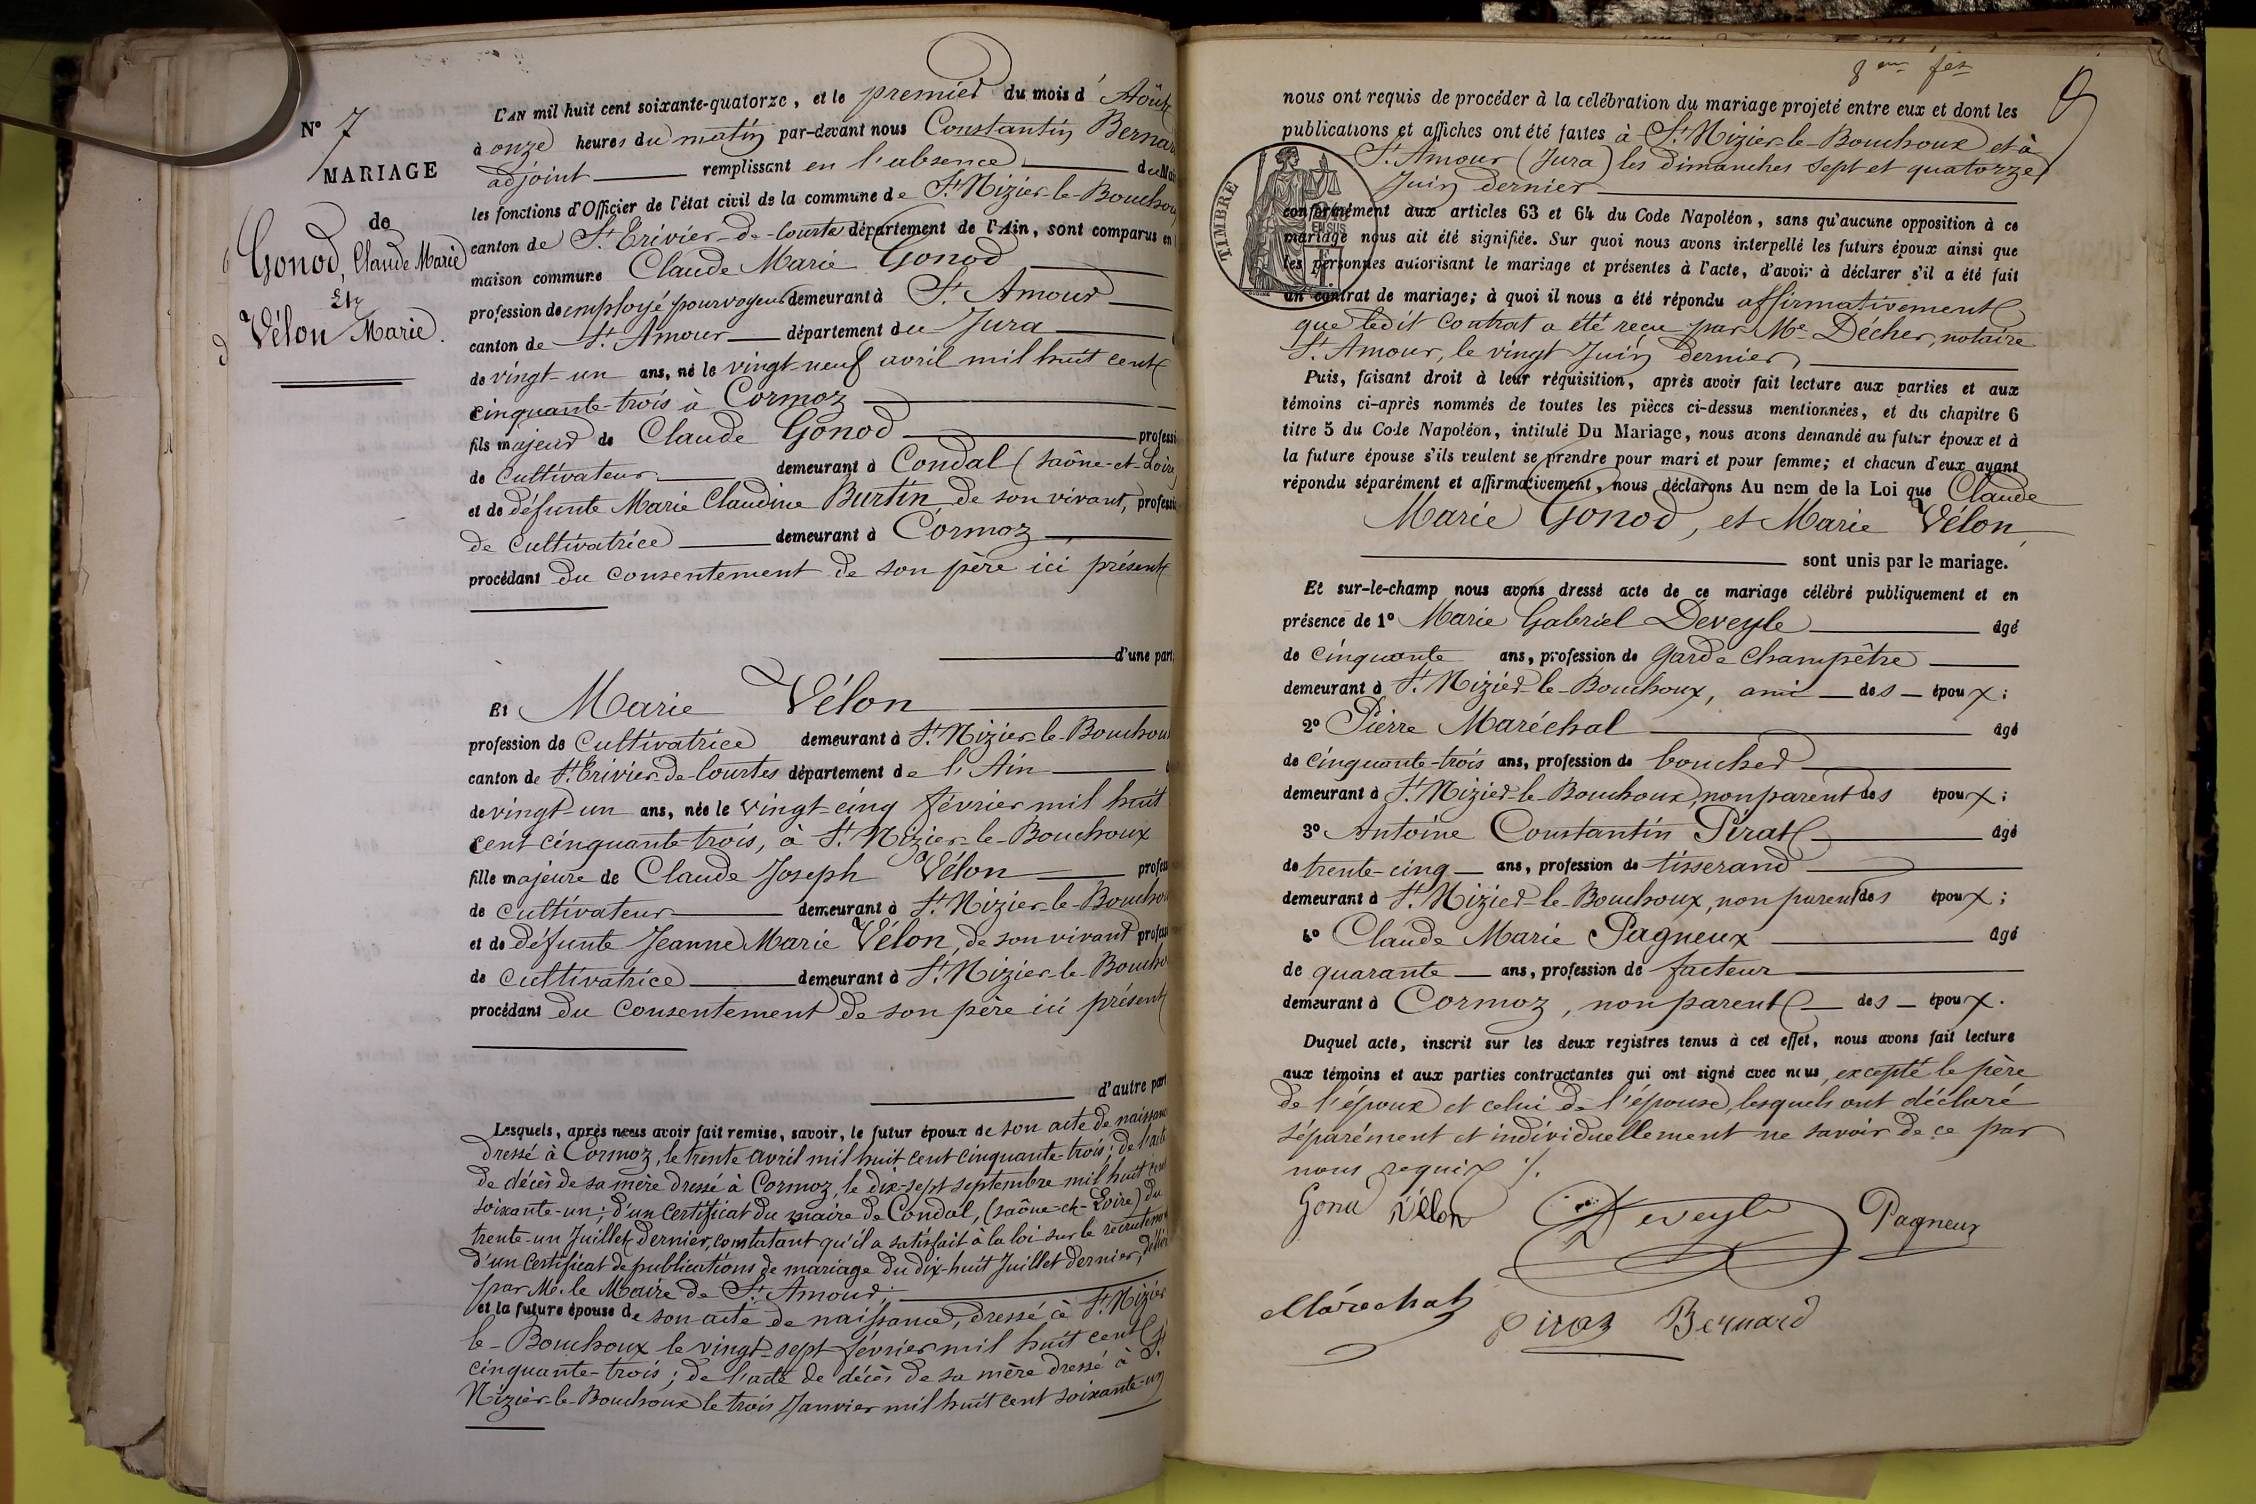 N° 7
MARIAGE
de
Gonod, Claude Marie
Et
Vélon Marie.
L'AN mil huit cent soixante-quatorze, et le premier du mois d' Août
à onze heures du matin par-devant nous Constantin Bernar
adjoint remplissant en l'absence du Mai
les fonctions d'Officier de l'état civil de la commune de St Nizier-le-Bouchou
canton de St Trivier-de-Courtes département de l'Ain, sont comparus en
maison commune Claude Marie Gonod
profession de employé pourvoyeur demeurant à St. Amour
canton de St. Amour département du Jura
de vingt-un ans, né le vingt-neuf avril mil huit cent
cinquante-trois à Cormoz
fils majeur de Claude Gonod professi
de cultivateur demeurant à Condal (Saône-et-Loire
et de défunte Marie Claudine Burtin, de son vivant, professi
de cultivatrice demeurant à Cormoz
procédant du consentement de son père ici présent
d'une part
Et Marie Vélon
profession de cultivatrice demeurant à St. Nizier-le-Bouchou
canton de St. Trivier-de-Courtes département de l'Ain
de vingt-un ans, née le vingt-cinq février mil huit
cent cinquante-trois, à St. Nizier-le-Bouchoux
fille majeure de Claude Joseph Vélon profess
de cultivateur demeurant à St. Nizier-le-Boucho
et de défunte Jeanne Marie Vélon, de son vivant profess
de cultivatrice demeurant à St. Nizier-le-Boucho
procédant du consentement de son père ici présent
d'autre part
Lesquels, après nous avoir fait remise, savoir, le futur époux de son acte de naissanc
dressé à Cormoz, le trente avril mil huit cent cinquante-trois; de l'acte
de décès de sa mère dressé à Cormoz, le dix-sept septembre mil huit cent
soixante-un; d'un certificat du maire de Condal, (Saône-et-Loire) du
trente-un Juillet dernier, constatant qu'il a satisfait à la loi sur le recrutemen
d'un certificat de publications de mariage du dix-huit Juillet dernier, délivré
par Mr. le Maire de St. Amour;
et la future épouse de son acte de naissance, dressé à St. Nizier
le-Bouchoux le vingt-sept février mil huit cent
cinquante-trois; de l'acte de décès de sa mère dressé à St.
Nizier-le-Bouchoux le trois Janvier mil huit cent soixante-un
8
nous ont requis de procéder à la célébration du mariage projeté entre eux et dont les
publications et affiches ont été faites à St. Nizier-le-Bouchoux et à
St. Amour (Jura) les dimanches sept et quatorze
Juin dernier
TIMBRE
conformément aux articles 63 et 64 du Code Napoléon, sans qu'aucune opposition à ce
mariage nous ait été signifiée. Sur quoi nous avons interpellé les futurs époux ainsi que
les personnes autorisant le mariage et présentes à l'acte, d'avoir à déclarer s'il a été fait
un contrat de mariage; à quoi il nous a été répondu affirmativement
que ledit contrat a été reçu par Me. Décher, notaire
St. Amour, le vingt Juin dernier,
Puis, faisant droit à leur réquisition, après avoir fait lecture aux parties et aux
témoins ci-après nommés de toutes les pièces ci-dessus mentionnées, et du chapitre 6
titre 5 du Code Napoléon, intitulé Du Mariage, nous avons demandé au futur époux et à
la future épouse s'ils veulent se prendre pour mari et pour femme; et chacun d'eux ayant
répondu séparément et affirmativement, nous déclarons Au nom de la Loi que Claude
Marie Gonod, et Marie Vélon,
sont unis par le mariage.
Et sur-le-champ nous avons dressé acte de ce mariage célébré publiquement et en
présence de 1° Marie Gabriel Deveyle âgé
de cinquante ans, profession de Garde Champêtre
demeurant à St. Nizier-le-Bouchoux, ami des époux;
2° Pierre Maréchal âgé
de cinquante-trois ans, profession de boucher
demeurant à St. Nizier-le-Bouchoux, non parent des époux;
3° Antoine Constantin Pirat âgé
de trente-cinq ans, profession de tisserand
demeurant à St. Nizier-le-Bouchoux, non parent des époux;
4° Claude Marie Pagneux âgé
de quarante ans, profession de facteur
demeurant à Cormoz, non parent des époux.
Duquel acte, inscrit sur les deux registres tenus à cet effet, nous avons fait lecture
aux témoins et aux parties contractantes qui ont signé avec nous, excepté le père
de l'époux et celui de l'épouse, lesquels ont déclaré
séparément et individuellement ne savoir de ce par
nous requix ./.
Gonod Vélon Deveyle Pagneux
Maréchal Piraz Bernard